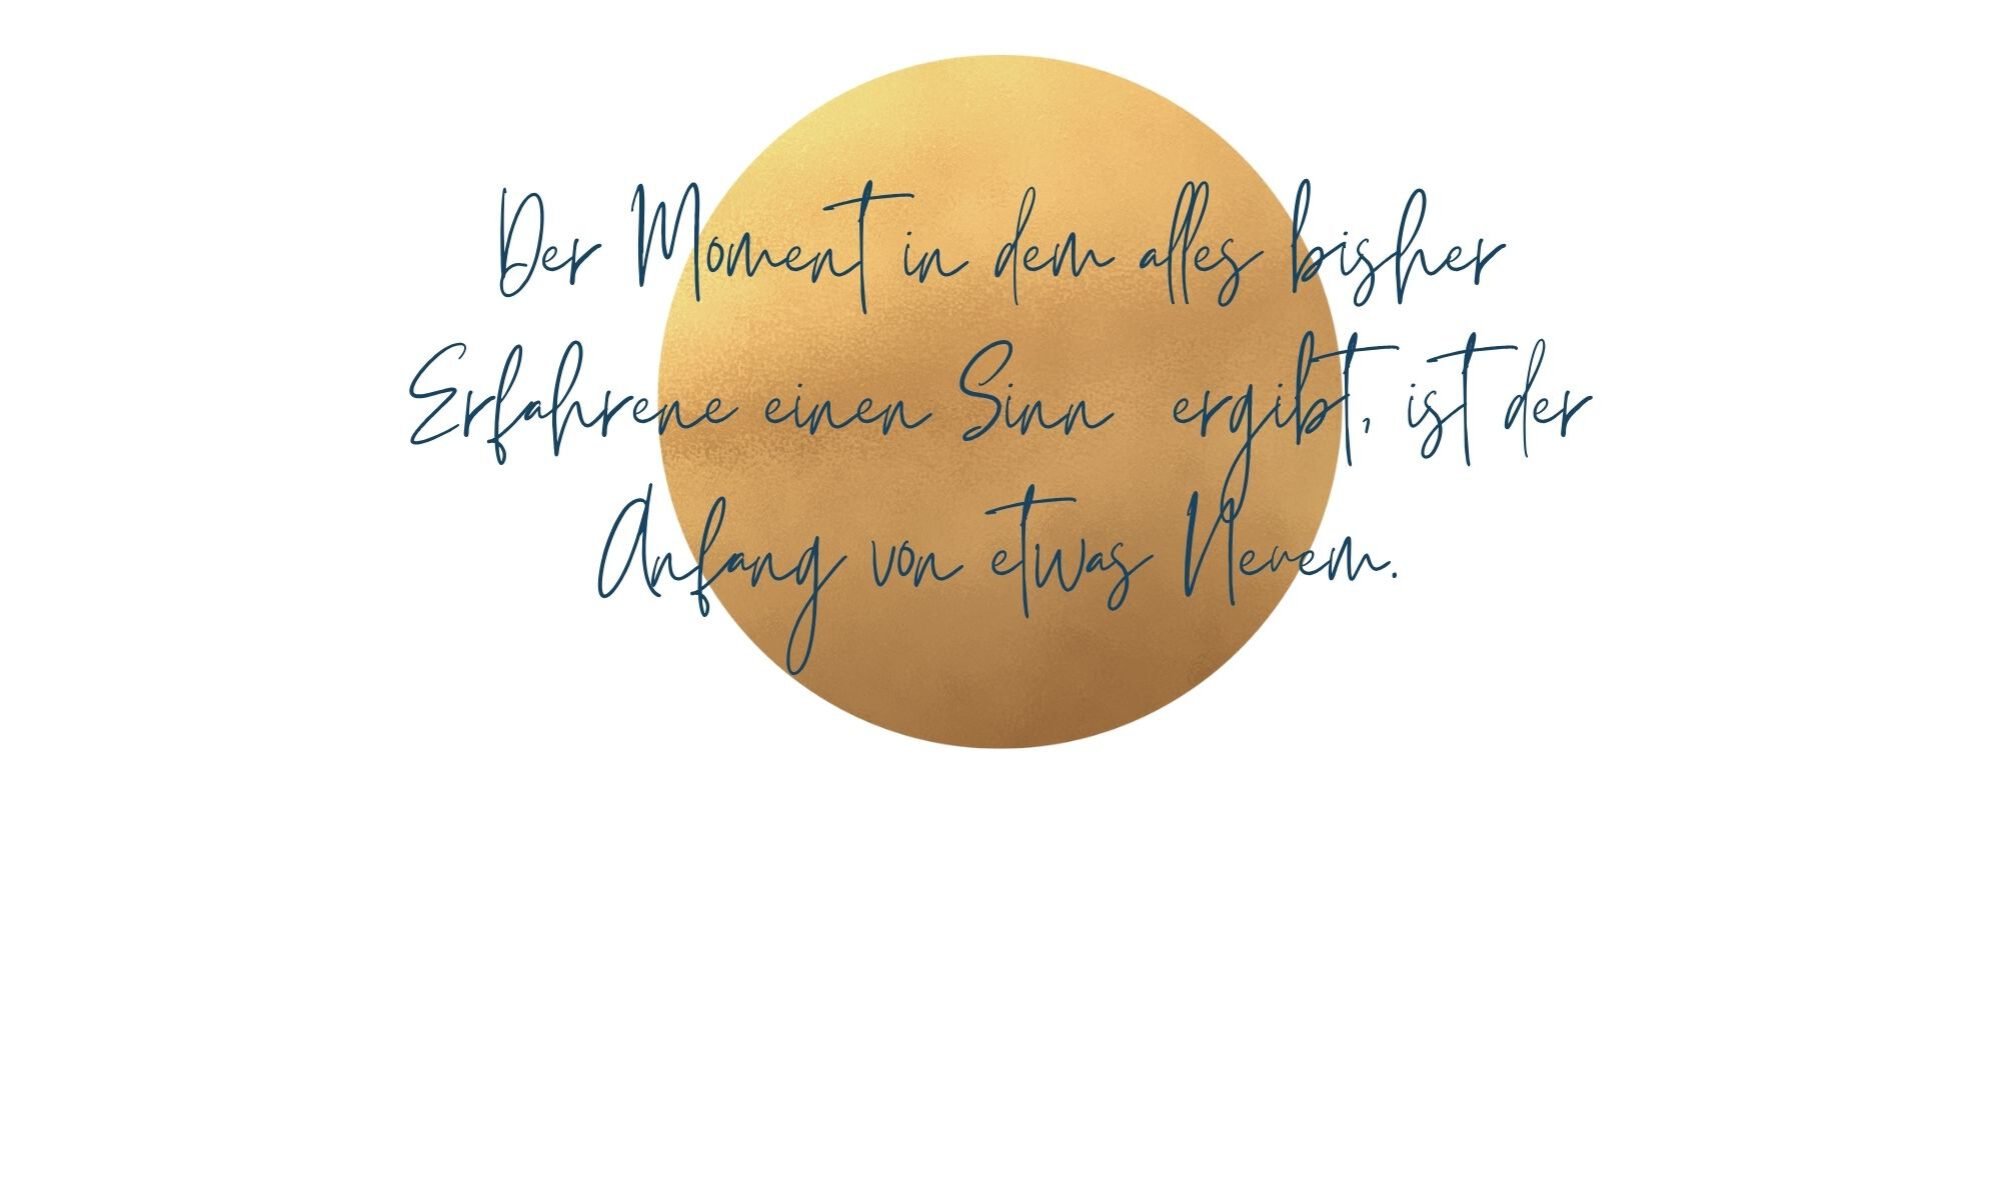 Der Moment in dem alles bisher
Erfahrene einen Sinn ergibt, ist der
Anfang von etwas Neuem.